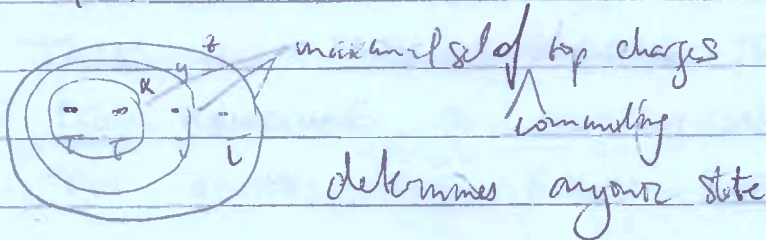 z
y
x
maximal set of top charges
commuting
τ τ τ τ
determines anyonic state